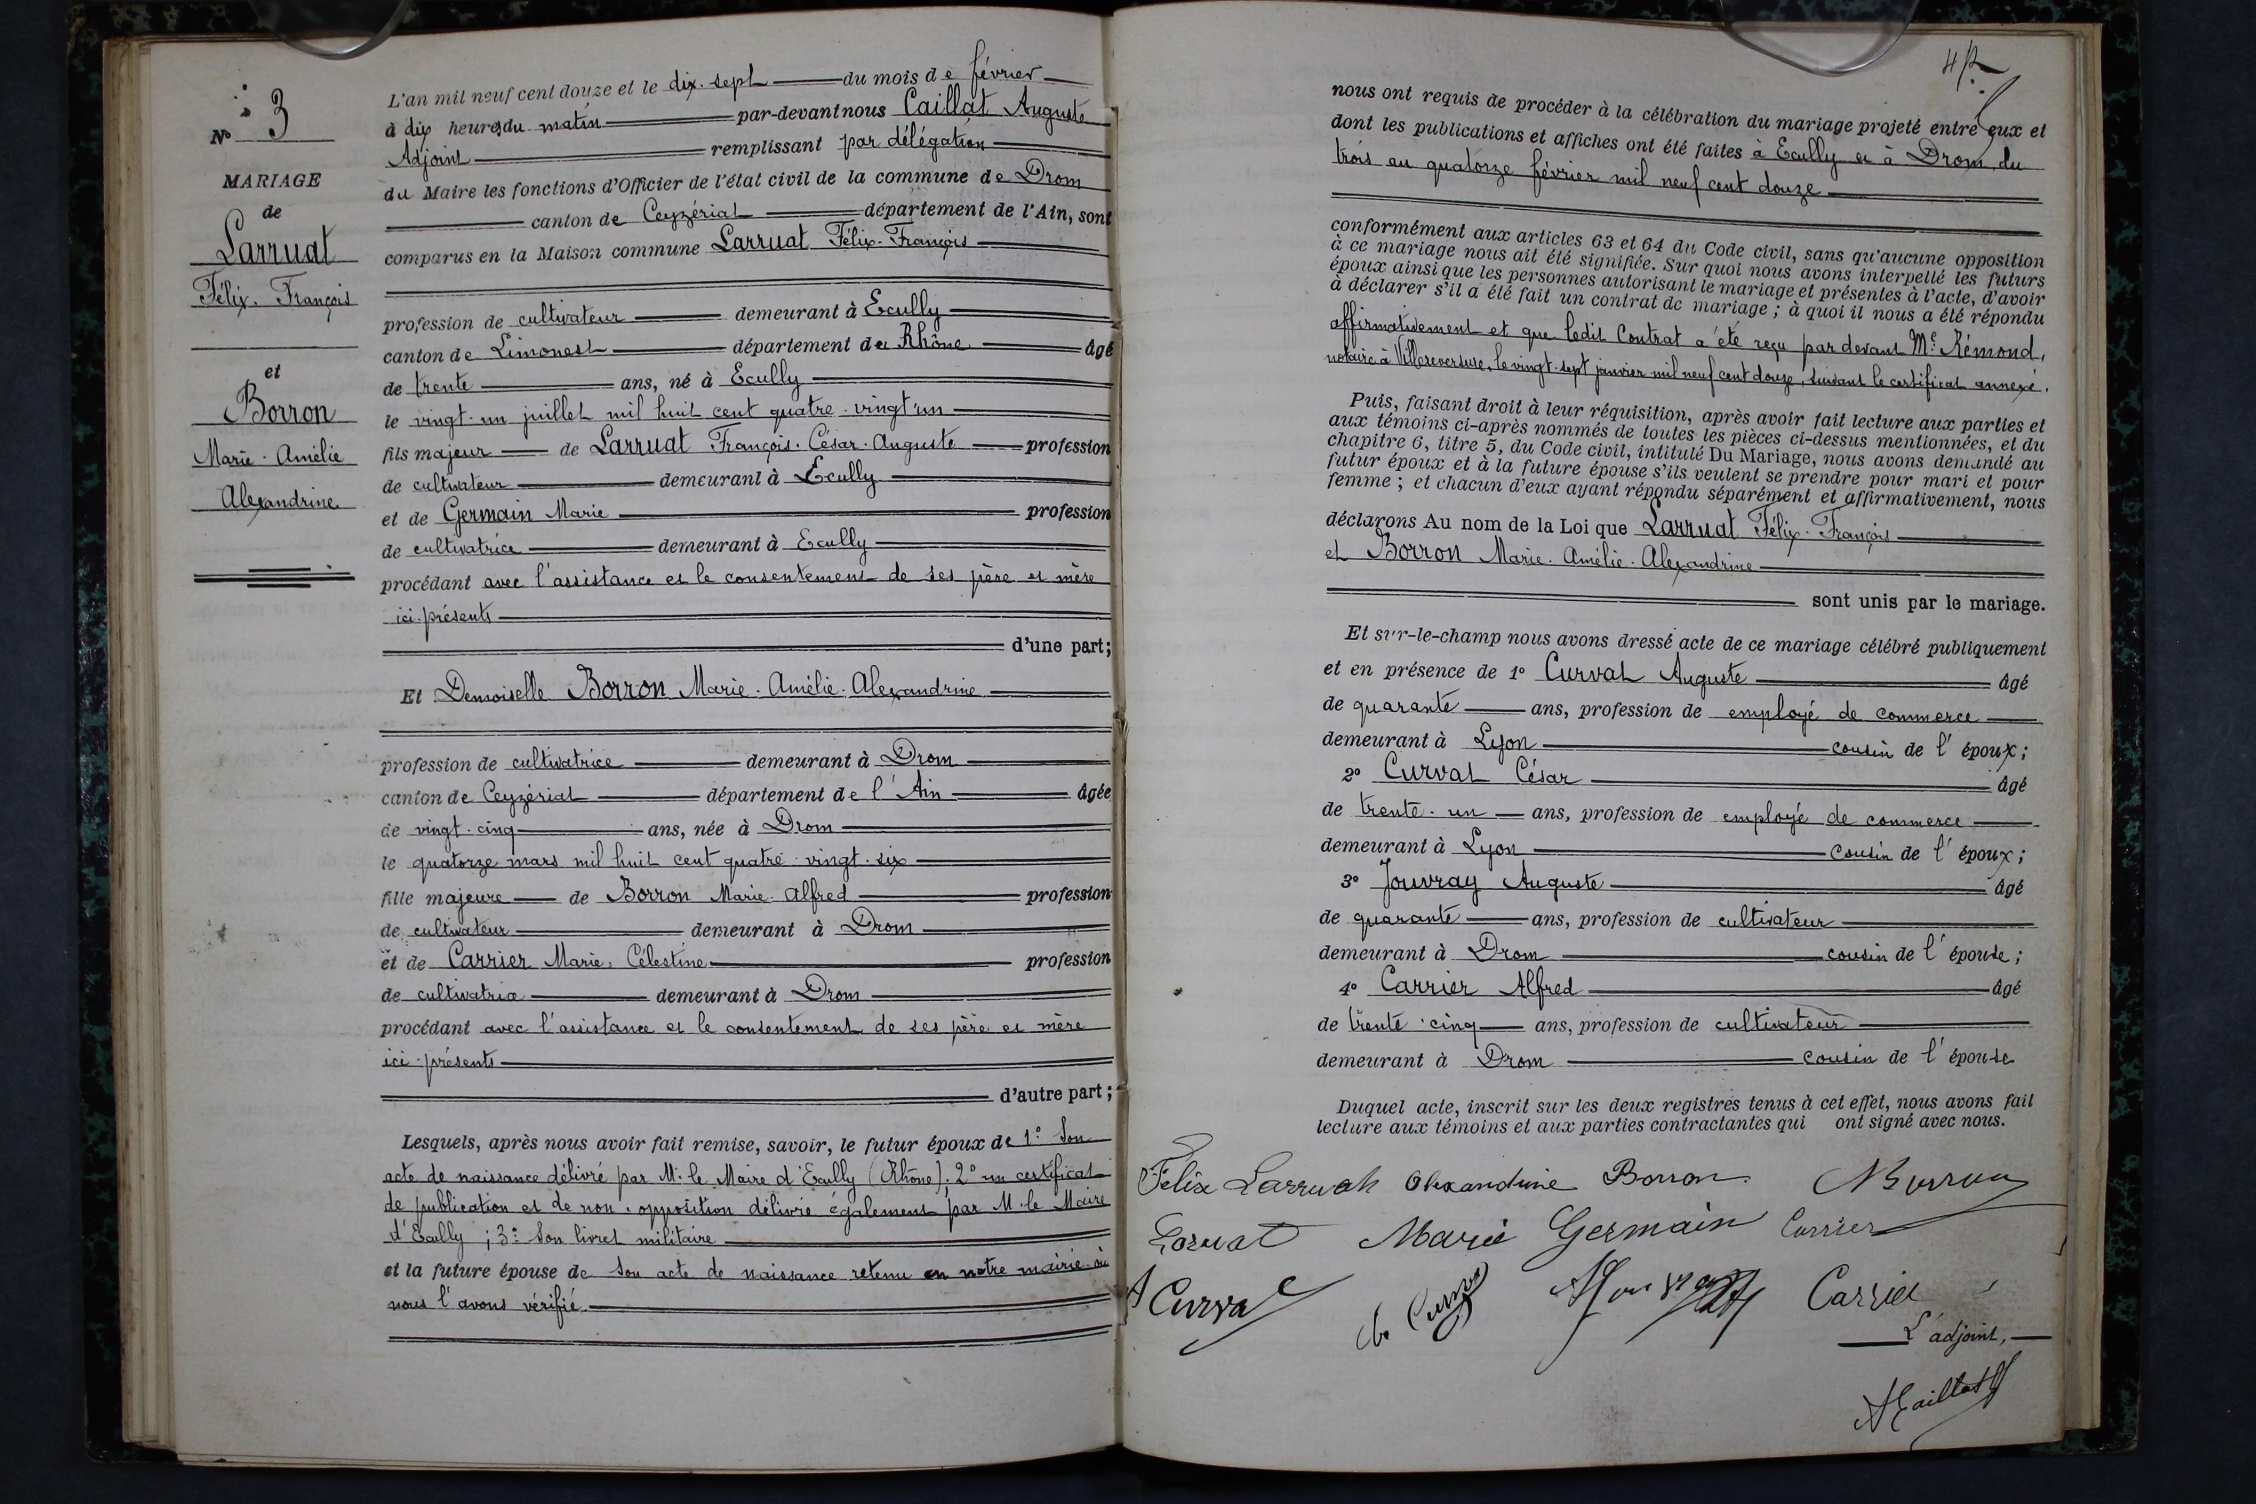 N° 3
MARIAGE
de
Larruat
Félix. François
et
Borron
Marie. Amélie
Alexandrine
L'an mil neuf cent douze et le dix. sept du mois de février
à dix heures du matin par-devant nous Caillat Auguste
Adjoint remplissant par délégation
du Maire les fonctions d'Officier de l'état civil de la commune de Drom
canton de Ceyzériat département de l'Ain, sont
comparus en la Maison commune Larruat Félix. François
profession de cultivateur demeurant à Ecully
canton de Limonest département du Rhône âgé
de trente ans, né à Ecully
le vingt. un juillet mil huit cent quatre. vingt un
fils majeur de Larruat François. César. Auguste profession
de cultivateur demeurant à Ecully
et de Germain Marie profession
de cultivatrice demeurant à Ecully
procédant avec l'assistance et le consentement de ses père et mère
ici. présents
d'une part;
Et Demoiselle Borron Marie. Amélie. Alexandrine
profession de cultivatrice demeurant à Drom
canton de Ceyzériat département de l'Ain âgée
de vingt. cinq ans, née à Drom
le quatorze mars mil huit cent quatre. vingt. six
fille majeure de Borron Marie. Alfred profession
de cultivateur demeurant à Drom
et de Carrier Marie. Célestine profession
de cultivatrice demeurant à Drom
procédant avec l'assistance et le consentement de ses père et mère
ici. présents
d'autre part;
Lesquels, après nous avoir fait remise, savoir, le futur époux de 1° Son
acte de naissance délivré par M. le Maire d'Ecully (Rhône). 2° un certificat
de publication et de non. opposition délivré également par M. le Maire
d'Ecully; 3° Son livret militaire
et la future épouse de son acte de naissance retenu en notre mairie où
nous l'avons vérifié.
nous ont requis de procéder à la célébration du mariage projeté entre eux et
dont les publications et affiches ont été faites à Ecully et à Drom, du
trois au quatorze février mil neuf cent douze
conformément aux articles 63 et 64 du Code civil, sans qu'aucune opposition
à ce mariage nous ait été signifiée. Sur quoi nous avons interpellé les futurs
époux ainsi que les personnes autorisant le mariage et présentes à l'acte, d'avoir
à déclarer s'il a été fait un contrat de mariage; à quoi il nous a été répondu
affirmativement et que ledit Contrat a été reçu par devant Me Rémond,
notaire à Villereversure, le vingt. sept janvier mil neuf cent douze, suivant le certificat annexé.
Puis, faisant droit à leur réquisition, après avoir fait lecture aux parties et
aux témoins ci-après nommés de toutes les pièces ci-dessus mentionnées, et du
chapitre 6, titre 5, du Code civil, intitulé Du Mariage, nous avons demandé au
futur époux et à la future épouse s'ils veulent se prendre pour mari et pour
femme; et chacun d'eux ayant répondu séparément et affirmativement, nous
déclarons Au nom de la Loi que Larruat Félix. François
et Borron Marie. Amélie. Alexandrine
sont unis par le mariage.
Et sur-le-champ nous avons dressé acte de ce mariage célébré publiquement
et en présence de 1° Curvat Auguste âgé
de quarante ans, profession de employé de commerce
demeurant à Lyon cousin de l'époux;
2° Curvat César âgé
de trente. un ans, profession de employé de commerce
demeurant à Lyon cousin de l'époux;
3° Jouvray Auguste âgé
de quarante ans, profession de cultivateur
demeurant à Drom cousin de l'épouse;
4° Carrier Alfred âgé
de trente. cinq ans, profession de cultivateur
demeurant à Drom cousin de l'épouse
Duquel acte, inscrit sur les deux registres tenus à cet effet, nous avons fait
lecture aux témoins et aux parties contractantes qui ont signé avec nous.
Félix Larruat Alexandrine Borron Borron
Larruat Marie Germain Carrier
A Curvat Carrier
L'adjoint,
A Caillat